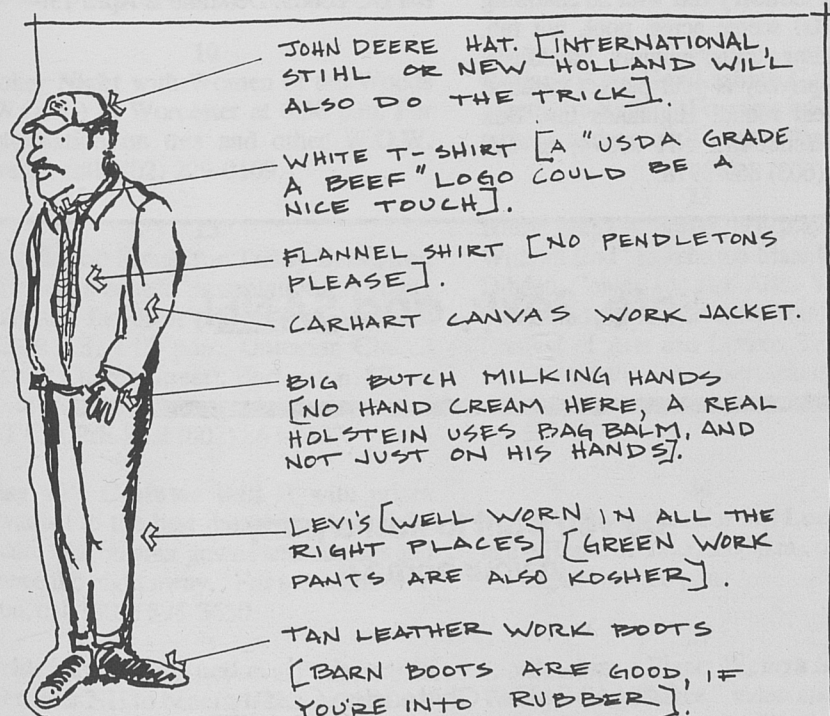 JOHN DEERE HAT. [INTERNATIONAL,
STIHL OR NEW HOLLAND WILL
ALSO DO THE TRICK].
WHITE T-SHIRT [A "USDA GRADE
A BEEF" LOGO COULD BE A
NICE TOUCH].
FLANNEL SHIRT [NO PENDLETONS
PLEASE].
CARHART CANVAS WORK JACKET.
BIG BUTCH MILKING HANDS
[NO HAND CREAM HERE, A REAL
HOLSTEIN USES BAG BALM, AND
NOT JUST ON HIS HANDS].
LEVI'S [WELL WORN IN ALL THE
RIGHT PLACES] [GREEN WORK
PANTS ARE ALSO KOSHER]
TAN LEATHER WORK BOOTS
[BARN BOOTS ARE GOOD, IF
YOU'RE INTO RUBBER].